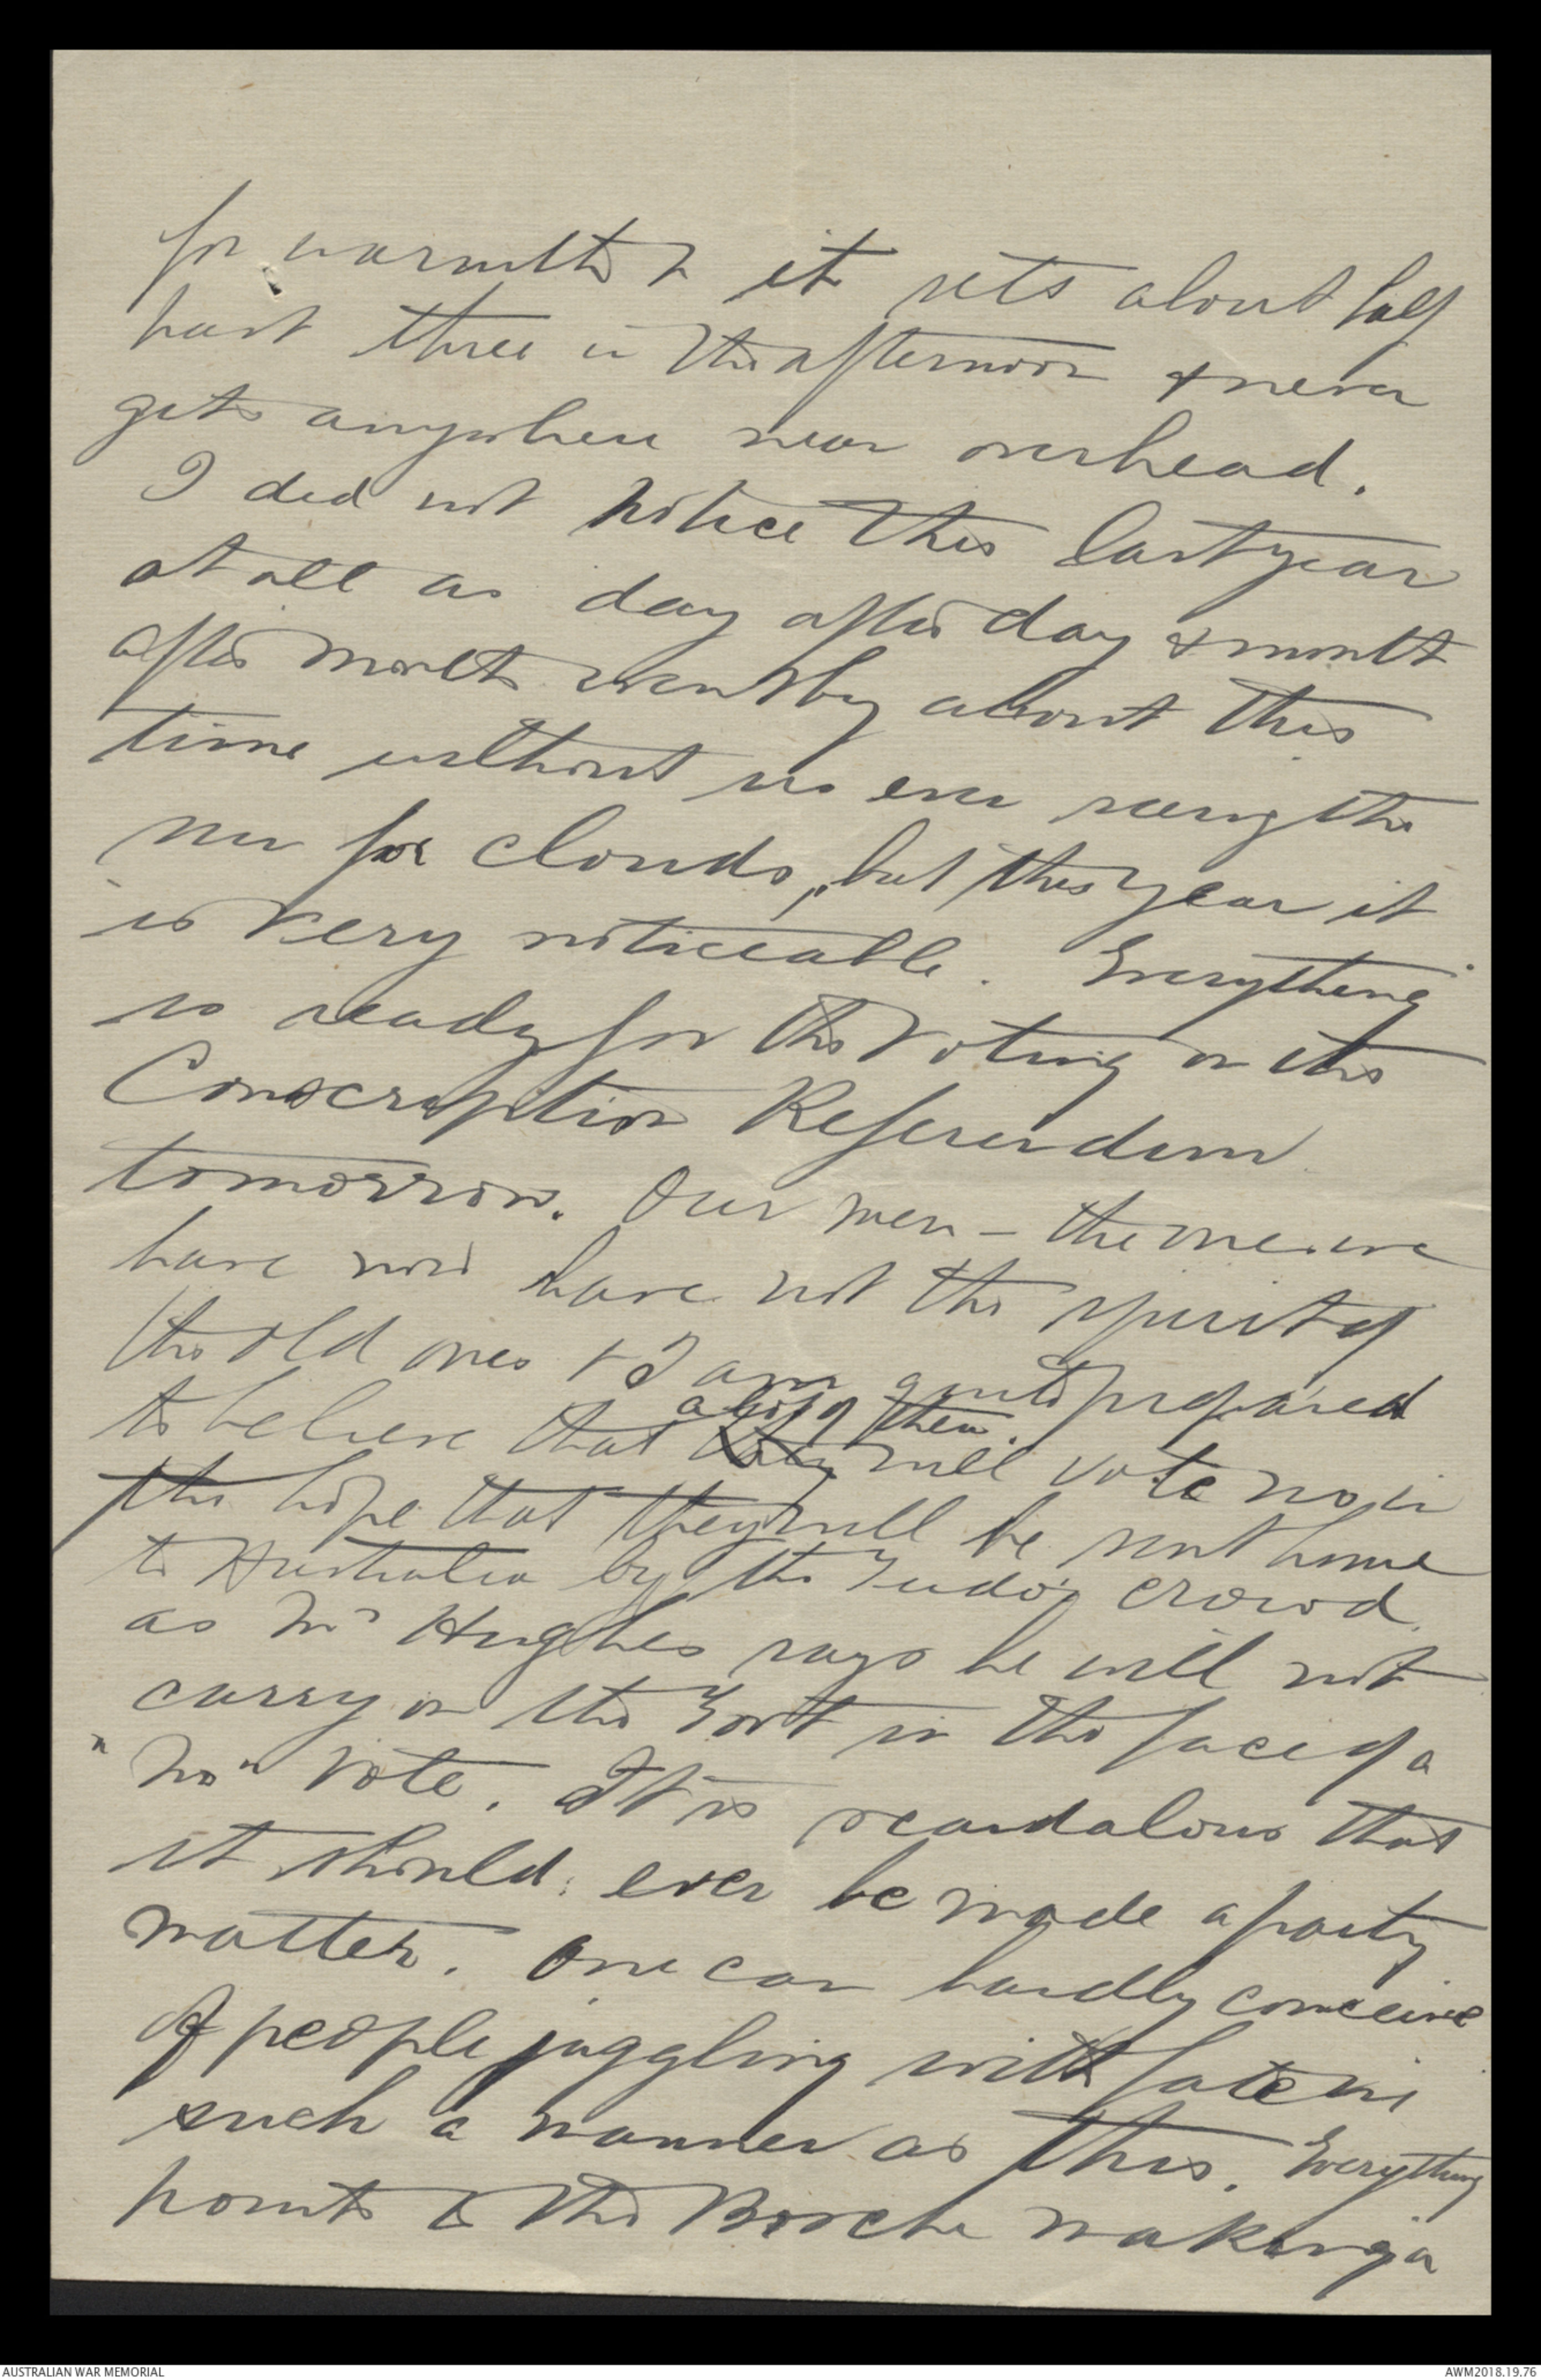 for warmth & it sets about half
past three in the afternoon & never
gets anywhere near overhead.
I did not notice this last year
at all as day after day & month
after month went by about this
time without us ever seeing the
sun for clouds, but this year it
is very noticeable. Everything
is ready for the voting on the
Conscription Referendum
tomorrow. Our men - the ones we
have now have not the spirit of
the old ones & I am quite prepared
to believe that a lot of them will vote no, in
the hope that they will be sent home
to Australia by the Tudor crowd
as Mr Hughes says he will not
carry on the Govt in the face of a
"No" vote. It is scandalous that
it should ever be made a party
matter. One can hardly conceive
of people juggling with fate in
such a manner as this. Everything
points to the Bosche making a
AUSTRALIAN WAR MEMORIAL
AWM2018.19.76